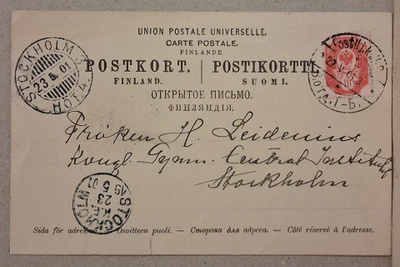 UNION POSTALE UNIVERSELLE.
CARTE POSTALE.
FINLANDE
POSTKORT. POSTIKORTTI.
FINLAND. SUOMI.
ОТКРЫТОЕ ПИСЬМО.
ФИНЛЯНДІЯ.
STOCKHOLM
23.5.01
Fröken H. Leidenius
Kongl. Gymn. Central Institutet
Stockholm
STOCKHOLM
K.E.
23
5 01
Sida för adressen. — Osoitteen puoli. — Сторона для адреса. — Côté réservé à l'adresse.